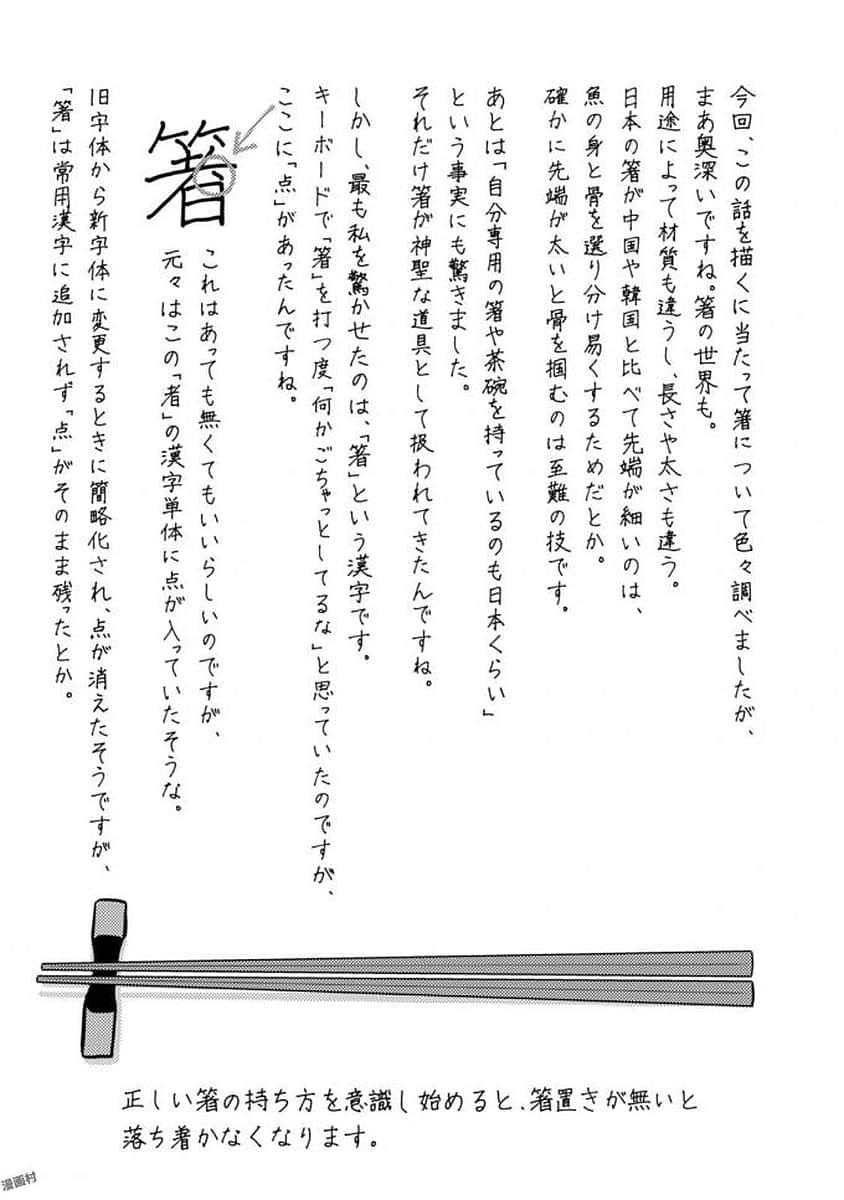 今回、この話を描くに当たって箸について色々調べましたが、
まあ奥深いですね。箸の世界も。
用途によって材質も違うし、長さや太さも違う。
日本の箸が中国や韓国と比べて先端が細いのは、
魚の身と骨を選り分け易くするためだとか。
確かに先端が太いと骨を掴むのは至難の技です。
あとは「自分専用の箸や茶碗を持っているのも日本くらい」
という事実にも驚きました。
それだけ箸が神聖な道具として扱われてきたんですね。
しかし、最も私を驚かせたのは、「箸」という漢字です。
キーボードで「箸」を打つ度「何かごちゃっとしてるな」と思っていたのですが、
ここに「点」があったんですね。
箸
これはあっても無くてもいいらしいのですが、
元々はこの「者」の漢字単体に点が入っていたそうな。
旧字体から新字体に変更するときに簡略化され、点が消えたそうですが、
「箸」は常用漢字に追加されず「点」がそのまま残ったとか。
正しい箸の持ち方を意識し始めると、箸置きが無いと
落ち着かなくなります。
漫画村